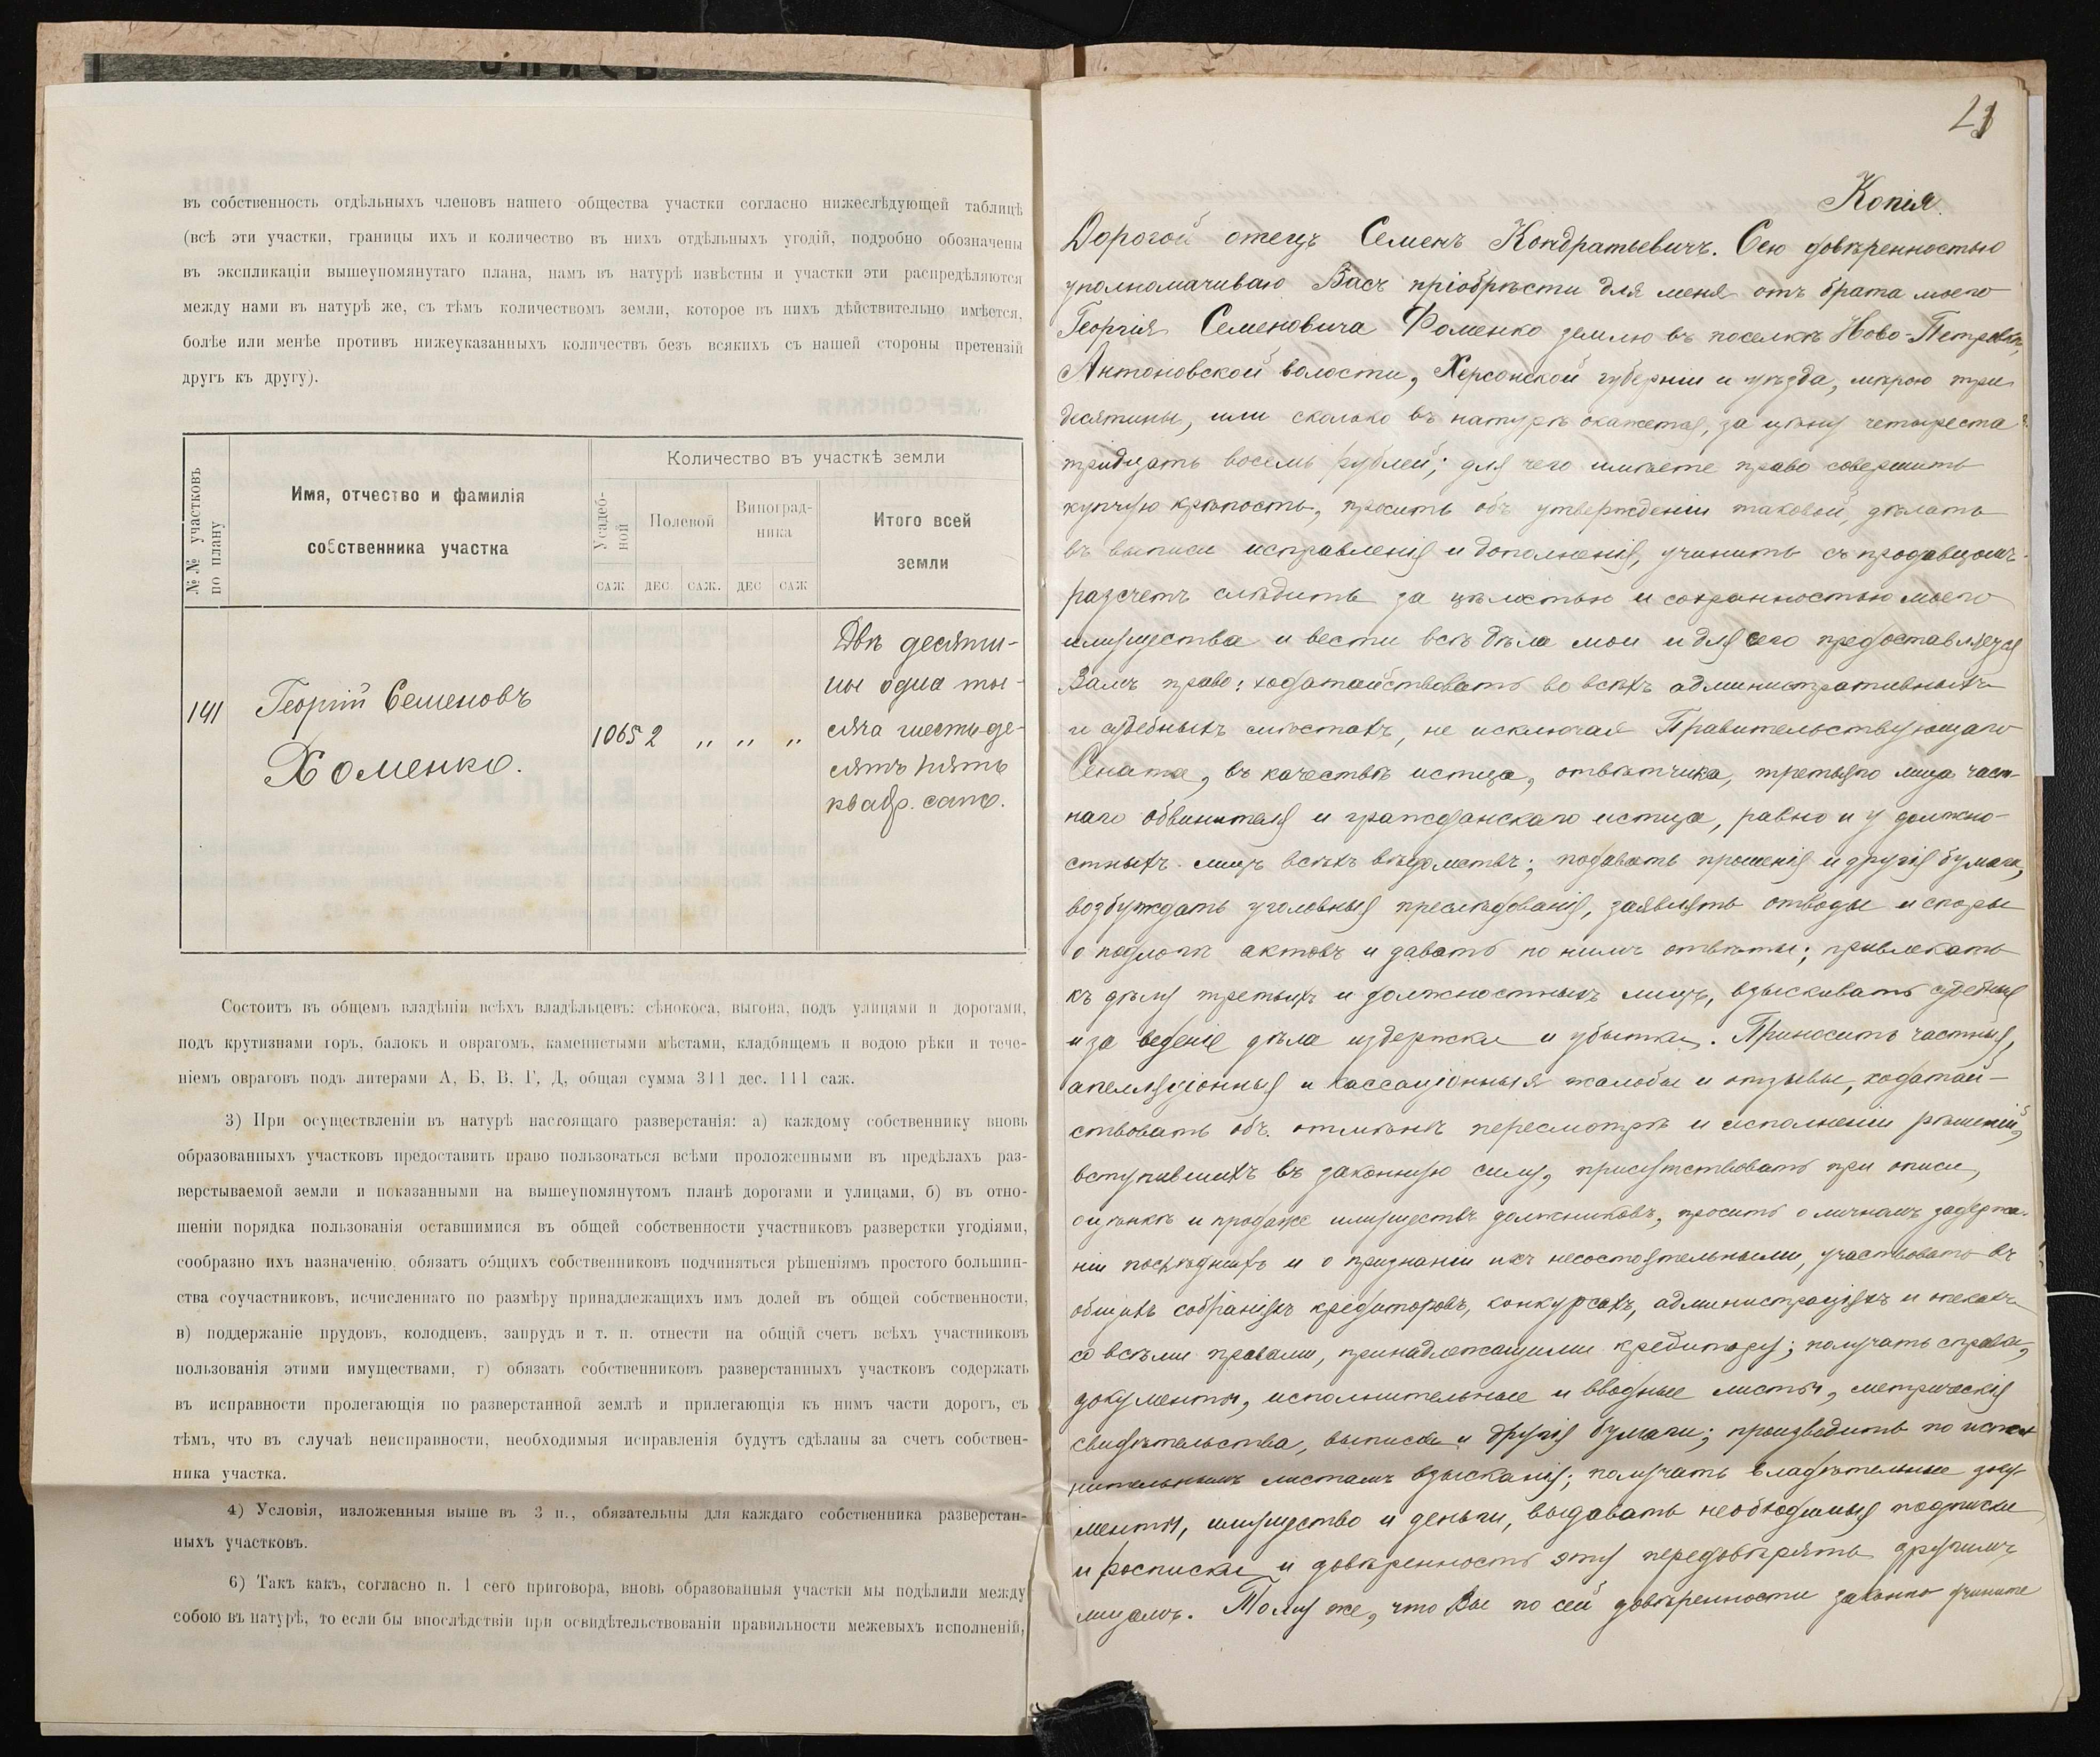 ОПИСЬ
въ собственность отдѣльныхъ членовъ нашего общества участки согласно нижеслѣдующей таблицѣ
(всѣ эти участки, границы ихъ и количество въ нихъ отдѣльныхъ угодій, подробно обозначены
въ экспликаціи вышеупомянутаго плана, намъ въ натурѣ извѣстны и участки эти распредѣляются
между нами въ натурѣ же, съ тѣмъ количествомъ земли, которое въ нихъ дѣйствительно имѣется,
болѣе или менѣе противъ нижеуказанныхъ количествъ безъ всякихъ съ нашей стороны претензій
другъ къ другу).
№№ участковъ по плану
Имя, отчество и фамилія
собственника участка
Количество въ участкѣ земли
Усадеб-
ной
Полевой
Виноград-
ника
Итого всей
земли
саж дес. саж. дес саж
141
Георгій Семеновъ
Хоменко.
1065 2 „ „ „
Двѣ десяти-
ны одна ты-
сяча шестьде-
сятъ пять
квадр. саж.
Состоитъ въ общемъ владѣніи всѣхъ владѣльцевъ: сѣнокоса, выгона, подъ улицами и дорогами,
подъ крутизнами горъ, балокъ и оврагомъ, каменистыми мѣстами, кладбищемъ и водою рѣки и тече-
ніемъ овраговъ подъ литерами А, Б, В, Г, Д, общая сумма 311 дес. 111 саж.
3) При осуществленіи въ натурѣ настоящаго разверстанія: а) каждому собственнику вновь
образованныхъ участковъ предоставить право пользоваться всѣми проложенными въ предѣлахъ раз-
верстываемой земли и показанными на вышеупомянутомъ планѣ дорогами и улицами, б) въ отно-
шеніи порядка пользованія оставшимися въ общей собственности участниковъ разверстки угодіями,
сообразно ихъ назначенію, обязать общихъ собственниковъ подчиняться рѣшеніямъ простого большин-
ства соучастниковъ, исчисленнаго по размѣру принадлежащихъ имъ долей въ общей собственности,
в) поддержаніе прудовъ, колодцевъ, запрудъ и т. п. отнести на общій счетъ всѣхъ участниковъ
пользованія этими имуществами, г) обязать собственниковъ разверстанныхъ участковъ содержать
въ исправности пролегающія по разверстанной землѣ и прилегающія къ нимъ части дорогъ, съ
тѣмъ, что въ случаѣ неисправности, необходимыя исправленія будутъ сдѣланы за счетъ собствен-
ника участка.
4) Условія, изложенныя выше въ 3 п., обязательны для каждаго собственника разверстан-
ныхъ участковъ.
6) Такъ какъ, согласно п. 1 сего приговора, вновь образованныя участки мы подѣлили между
собою въ натурѣ, то если бы впослѣдствіи при освидѣтельствованіи правильности межевыхъ исполненій,
Копія.
Дорогой отецъ Семенъ Кондратьевичъ. Сею довѣренностью
уполномачиваю Васъ пріобрѣсти для меня отъ брата моего
Георгія Семеновича Фоменко землю въ поселкѣ Ново-Петровкѣ,
Антоновской волости, Херсонской губерніи и уѣзда, мѣрою три
десятины, или сколько въ натурѣ окажется, за цѣну четыреста
тридцать восемь рублей; для чего имѣете право совершить
купчую крѣпость, просить объ утвержденіи таковой, дѣлать
въ выписи исправленія и дополненія, учинить съ продавцомъ
разсчетъ слѣдить за цѣлостью и сохранностью моего
имущества и вести всѣ дѣла мои и для сего предоставляется
Вамъ право: ходатайствовать во всѣхъ административныхъ
и судебныхъ мѣстахъ, не исключая Правительствующаго
Сената, въ качествѣ истца, отвѣтчика, третьяго лица част-
наго обвинителя и гражданскаго истца, равно и у должно-
стныхъ лицъ всѣхъ вѣдомствъ; подавать прошенія и другія бумаги,
возбуждать уголовныя преслѣдованія, заявлять отводы и споры
о подлогѣ актовъ и давать по нимъ отвѣты; привлекать
къ дѣлу третьихъ и должностныхъ лицъ, взыскивать судебныя
и за веденіе дѣла издержки и убытки. Приносить частныя,
апелляціонныя и кассаціонныя жалобы и отзывы, ходатай-
ствовать объ отмѣнѣ пересмотрѣ и исполненіи рѣшеній,
вступившихъ въ законную силу, присутствовать при описи,
оцѣнкѣ и продаже имуществъ должниковъ, просить о личномъ задержа-
ніи послѣднихъ и о признаніи ихъ несостоятельными, участвовать въ
общихъ собраніяхъ кредиторовъ, конкурсахъ, администраціяхъ и опекахъ
со всѣми правами, принадлежащими кредитору; получать справки,
документы, исполнительные и вводные листы, метрическія
свидѣтельства, выписки и другія бумаги; производить по испол-
нительнымъ листамъ взысканія; получать владѣтельные доку-
менты, имущество и деньги, выдавать необходимыя подписки
и росписки и довѣренность эту передовѣрять другимъ
лицамъ. Тому же, что Вы по сей довѣренности законно учините